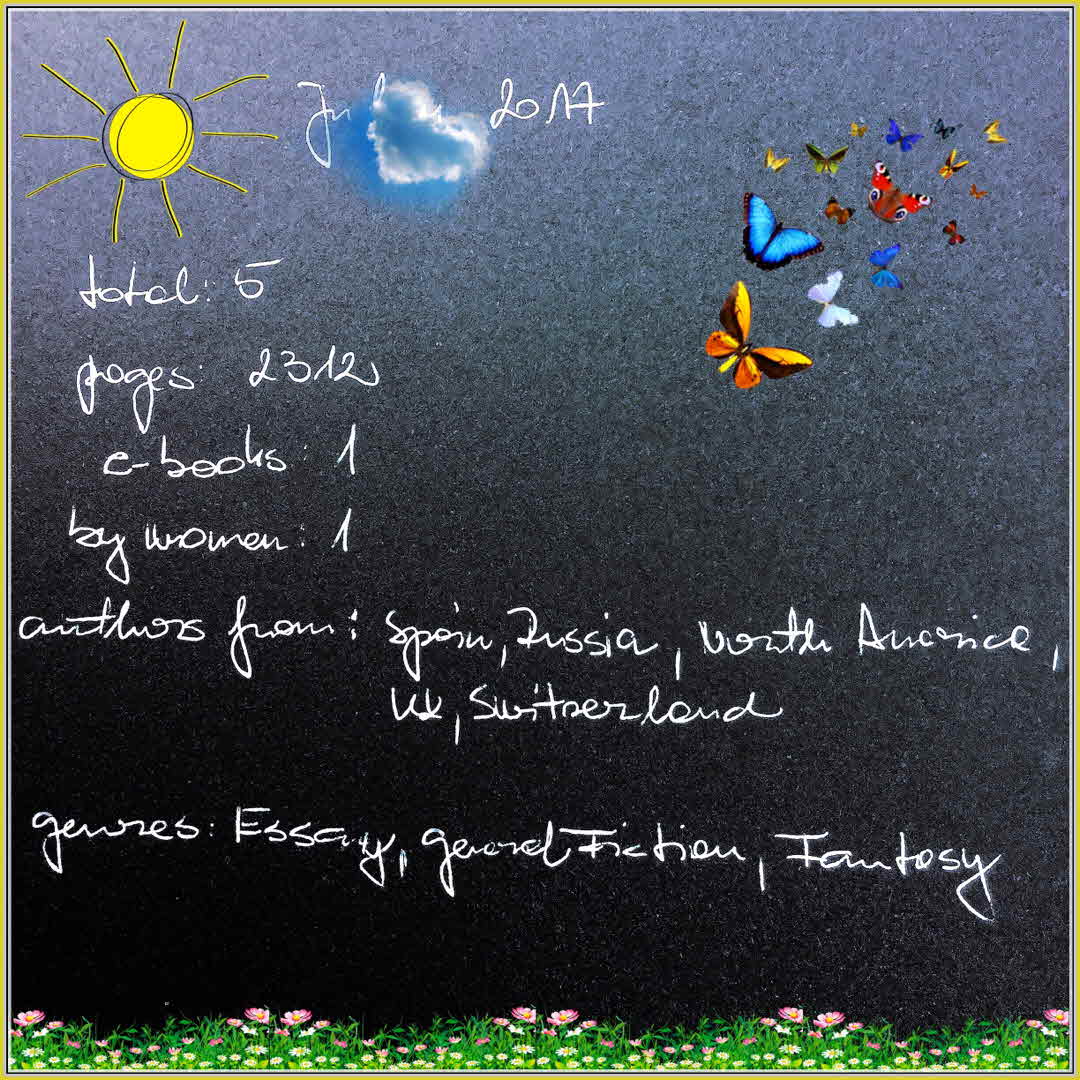 2017
total: 5
pages: 2312
e-books: 1
by women: 1
authors from: Spain, Russia, North America,
UK, Switzerland
genres: Essay, general Fiction, Fantasy